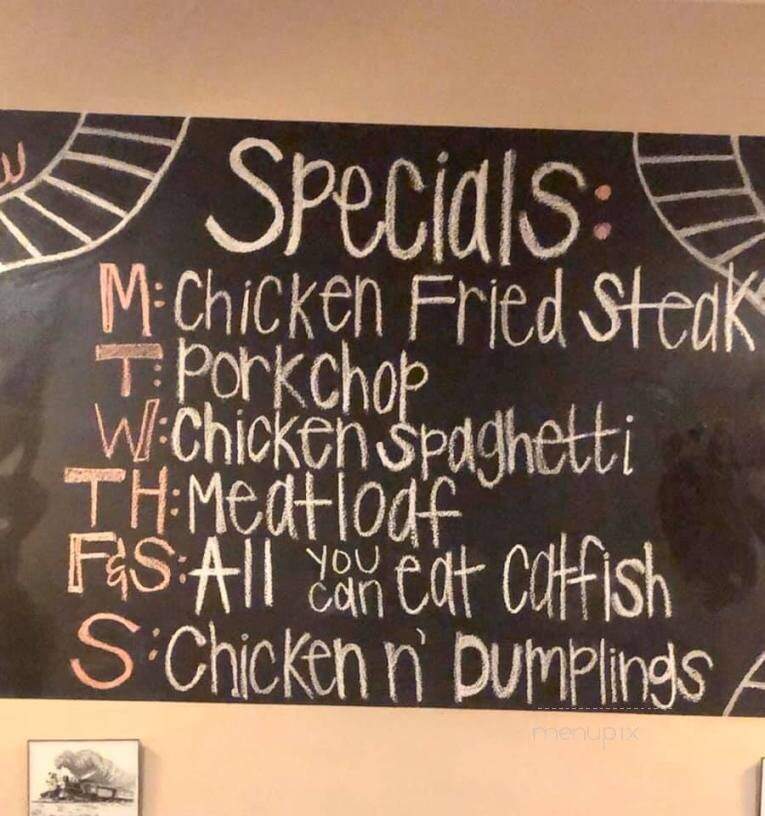 w
Specials:
M: Chicken Fried Steak
T: Porkchop
W: Chicken Spaghetti
TH: Meatloaf
F&S: All you can eat catfish
S: Chicken n' Dumplings
menupix